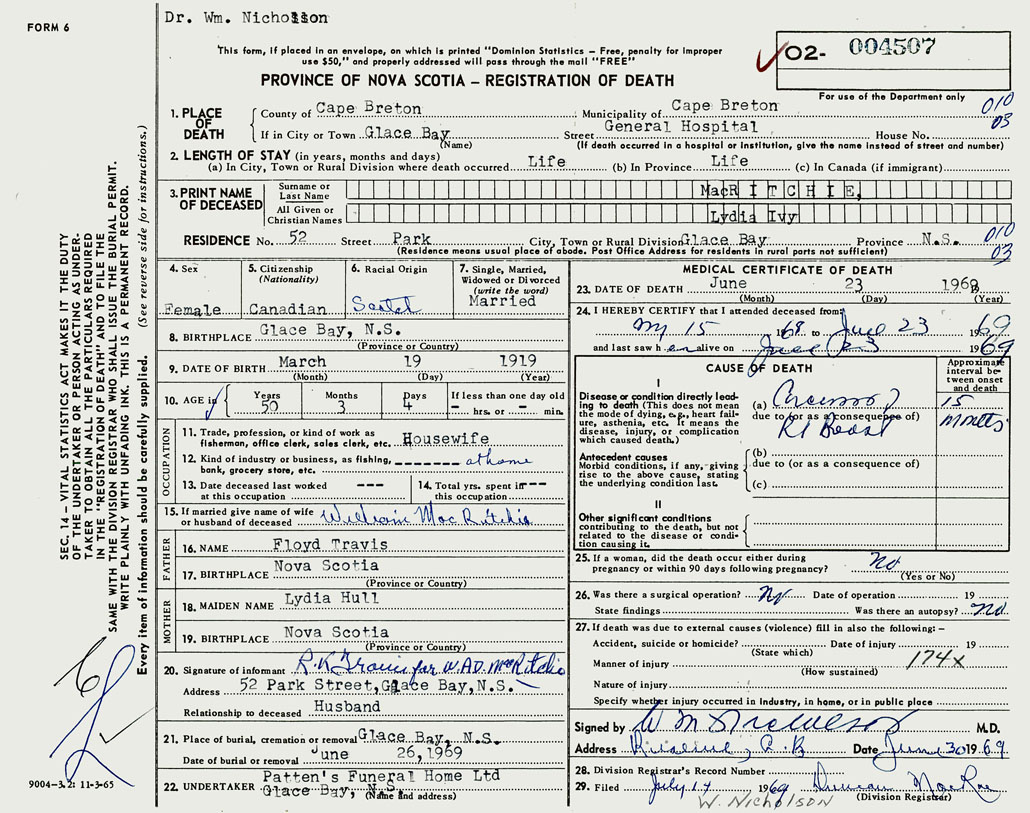 Dr. Wm. Nicholson
FORM 6
This form, if placed in an envelope, on which is printed "Dominion Statistics – Free, penalty for improper
use $50," and properly addressed will pass through the mail "FREE"
O2- 004507
PROVINCE OF NOVA SCOTIA – REGISTRATION OF DEATH
For use of the Department only
010
03
1. PLACE OF DEATH
County of Cape Breton Municipality of Cape Breton
If in City or Town Glace Bay Street General Hospital House No.
(Name) (If death occurred in a hospital or institution, give the name instead of street and number)
2. LENGTH OF STAY (in years, months and days)
(a) In City, Town or Rural Division where death occurred Life (b) In Province Life (c) In Canada (if immigrant)
3. PRINT NAME OF DECEASED
Surname or Last Name MacRITCHIE,
All Given or Christian Names Lydia Ivy
RESIDENCE No. 52 Street Park City, Town or Rural Division Glace Bay Province N.S. 010
(Residence means usual place of abode. Post Office Address for residents in rural parts not sufficient) 03
4. Sex
Female
5. Citizenship
(Nationality)
Canadian
6. Racial Origin
7. Single, Married,
Widowed or Divorced
(write the word)
Married
8. BIRTHPLACE Glace Bay, N.S.
(Province or Country)
9. DATE OF BIRTH March 19 1919
(Month) (Day) (Year)
10. AGE in Years Months Days If less than one day old
50 3 4 – hrs. or – min.
OCCUPATION
11. Trade, profession, or kind of work as
fisherman, office clerk, sales clerk, etc. Housewife
12. Kind of industry or business, as fishing, at home
bank, grocery store, etc.
13. Date deceased last worked ---
at this occupation
14. Total yrs. spent in ---
this occupation
15. If married give name of wife
or husband of deceased William MacRitchie
FATHER
16. NAME Floyd Travis
17. BIRTHPLACE Nova Scotia
(Province or Country)
MOTHER
18. MAIDEN NAME Lydia Hull
19. BIRTHPLACE Nova Scotia
(Province or Country)
20. Signature of informant R.K. Travis for W.A.D. MacRitchie
Address 52 Park Street, Glace Bay, N.S.
Relationship to deceased Husband
21. Place of burial, cremation or removal Glace Bay, N.S.
Date of burial or removal June 26, 1969
22. UNDERTAKER Patten's Funeral Home Ltd
Glace Bay, N.S.
(Name and address)
MEDICAL CERTIFICATE OF DEATH
23. DATE OF DEATH June 23 1969
(Month) (Day) (Year)
24. I HEREBY CERTIFY that I attended deceased from
15 1968 to June 23 1969
and last saw her alive on June 23 1969
CAUSE OF DEATH
Approximate
interval be-
tween onset
and death
I
Disease or condition directly lead-
ing to death (This does not
mean the mode of dying, e.g., heart fail-
ure, asthenia, etc. It means the
disease, injury, or complication
which caused death.)
(a)
due to (or as a consequence of)
Rt Breast
15
months
Antecedent causes
Morbid conditions, if any, giving
rise to the above cause, stating
the underlying condition last.
(b)
due to (or as a consequence of)
(c)
II
Other significant conditions
contributing to the death, but not
related to the disease or condi-
tion causing it.
25. If a woman, did the death occur either during
pregnancy or within 90 days following pregnancy? no
(Yes or No)
26. Was there a surgical operation? no Date of operation 19
State findings Was there an autopsy? no
27. If death was due to external causes (violence) fill in also the following: –
Accident, suicide or homicide? Date of injury 19
(State which) 174x
Manner of injury
(How sustained)
Nature of injury
Specify whether injury occurred in Industry, in home, or in public place
Signed by M.D.
Address Date June 30 1969
28. Division Registrar's Record Number
29. Filed July 14 1969 Duncan MacRae
(Division Registrar)
W. NICHOLSON
SEC. 14 – VITAL STATISTICS ACT MAKES IT THE DUTY
OF THE UNDERTAKER OR PERSON ACTING AS UNDER-
TAKER TO OBTAIN ALL THE PARTICULARS REQUIRED
IN THE "REGISTRATION OF DEATH" AND TO FILE THE
SAME WITH THE DIVISION REGISTRAR WHO SHALL ISSUE THE BURIAL PERMIT.
WRITE PLAINLY WITH UNFADING INK. THIS IS A PERMANENT RECORD.
Every item of information should be carefully supplied. (See reverse side for instructions.)
9004–3.2: 11-3-65